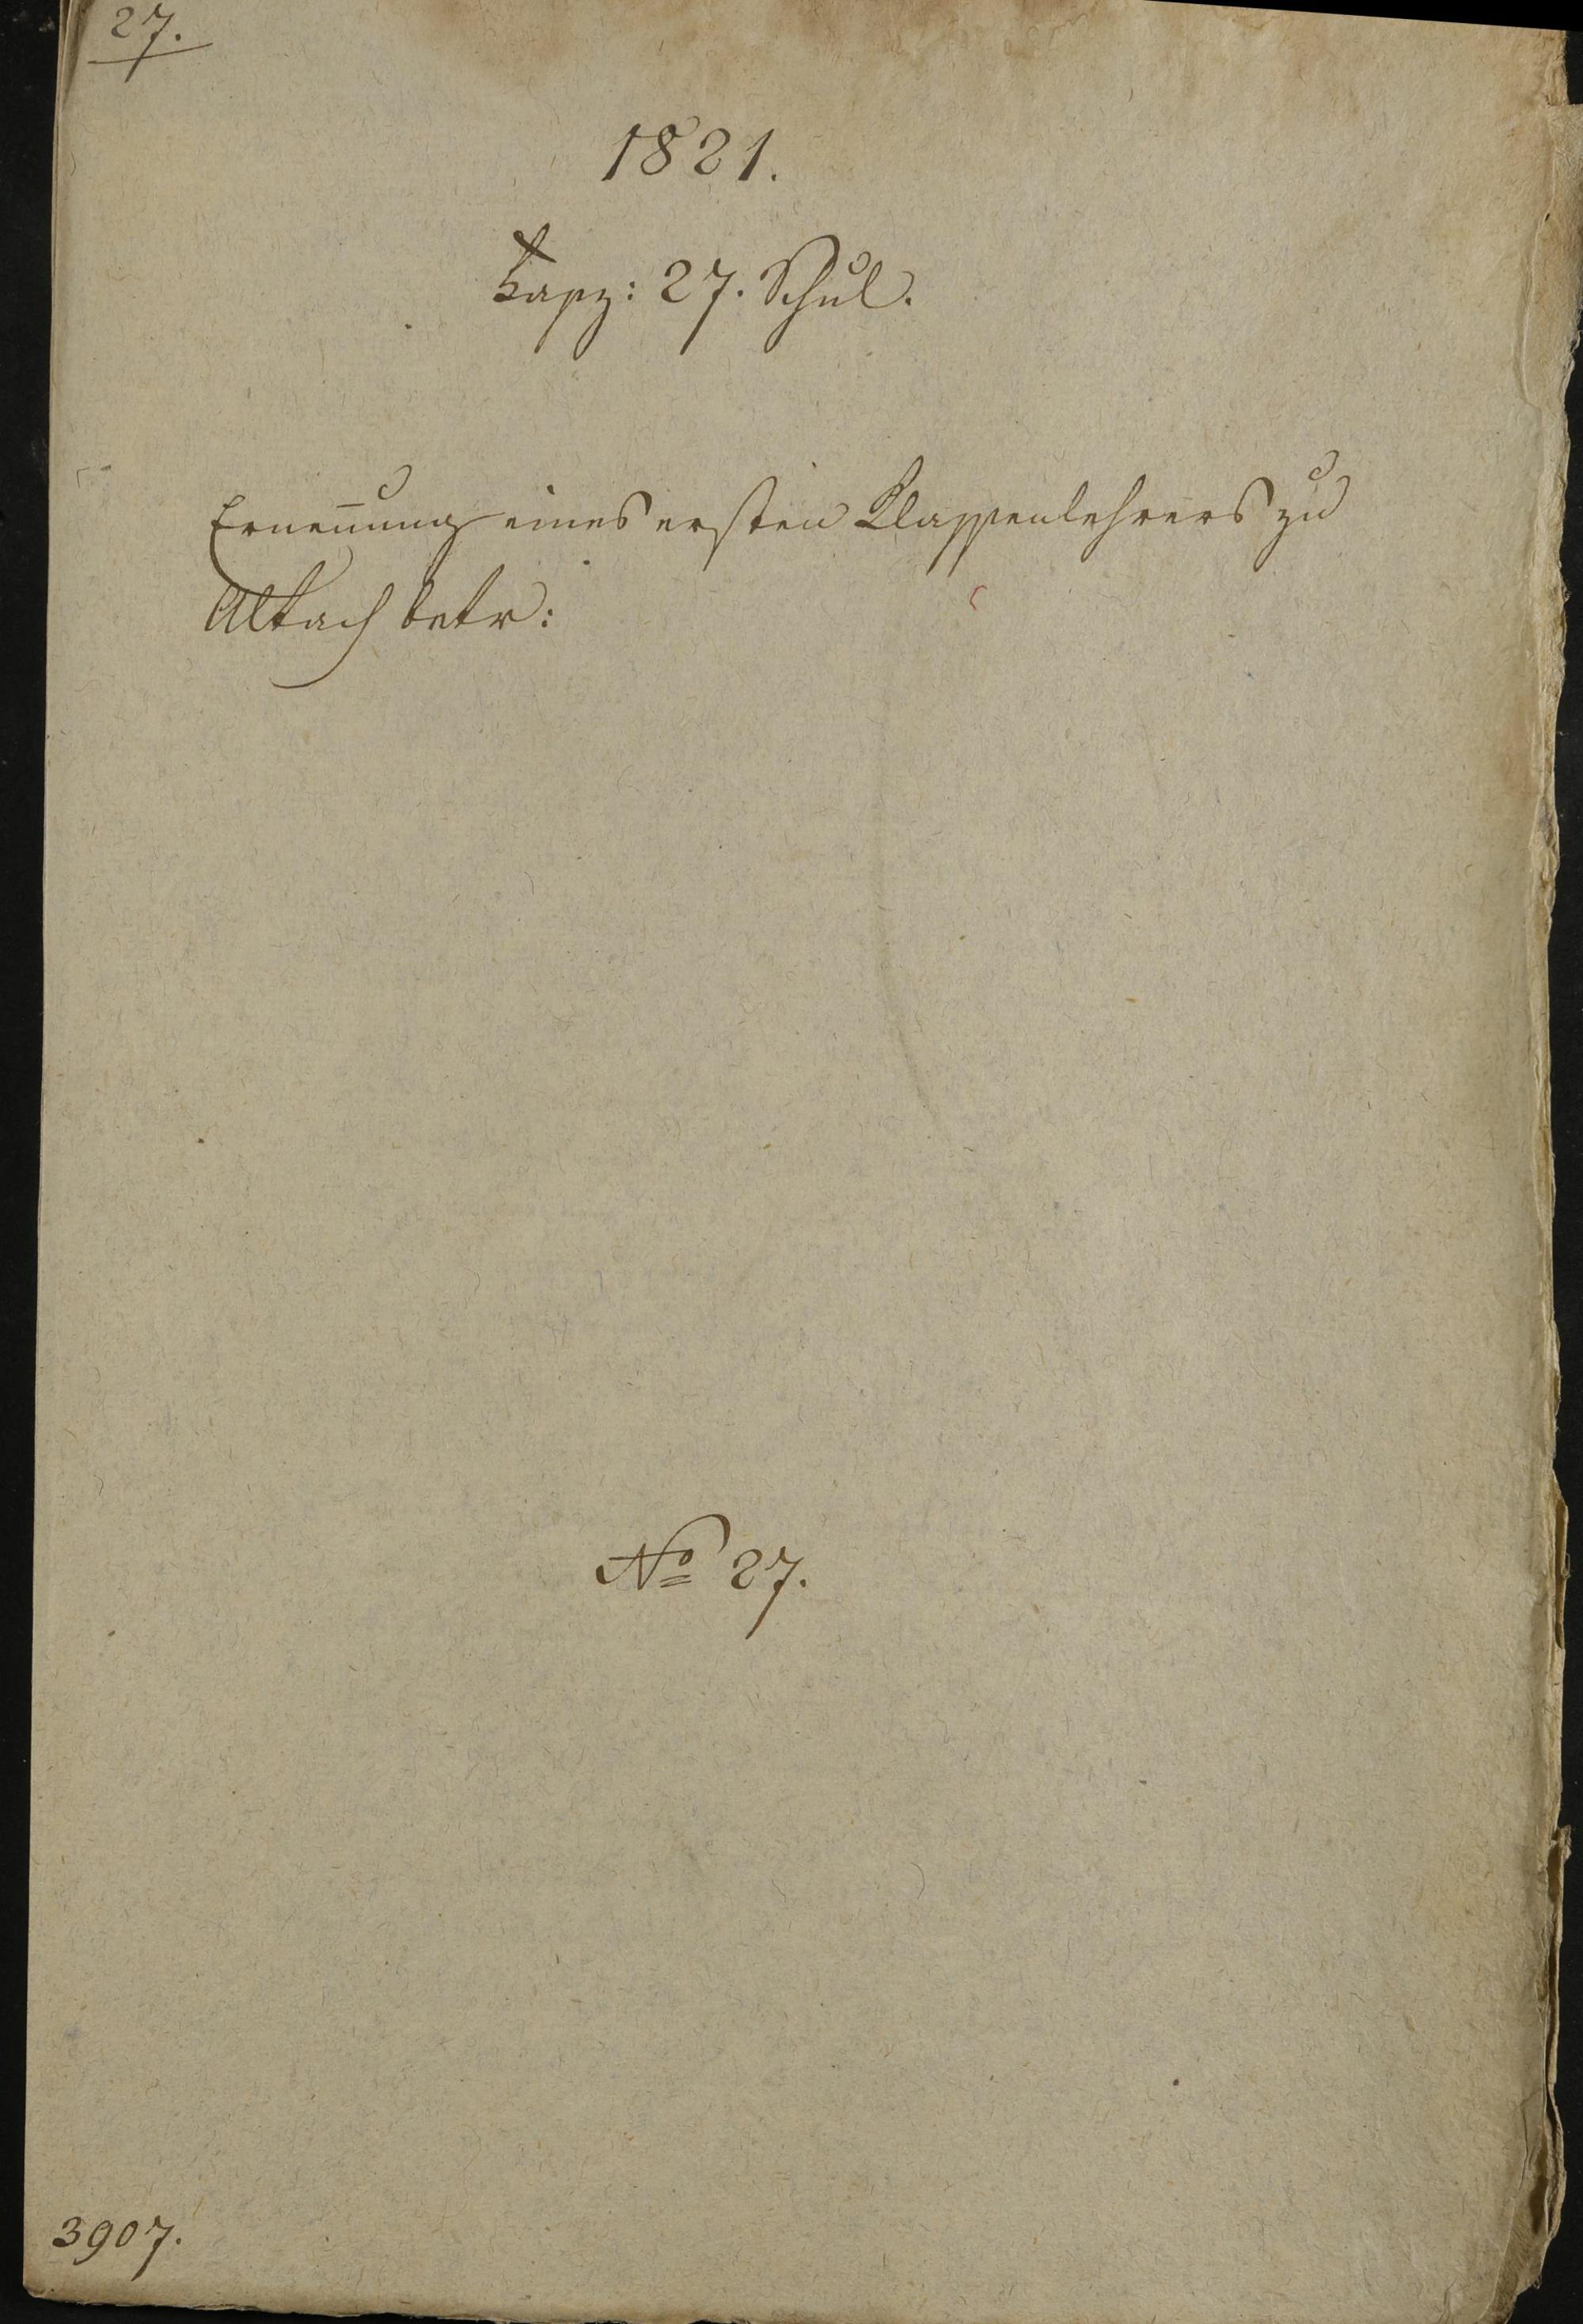 27.
1821.
Fasz: 27. Schul.
Ernennung eines ersten Klassenlehrers zu
Altach betr:
No 27.
3907.